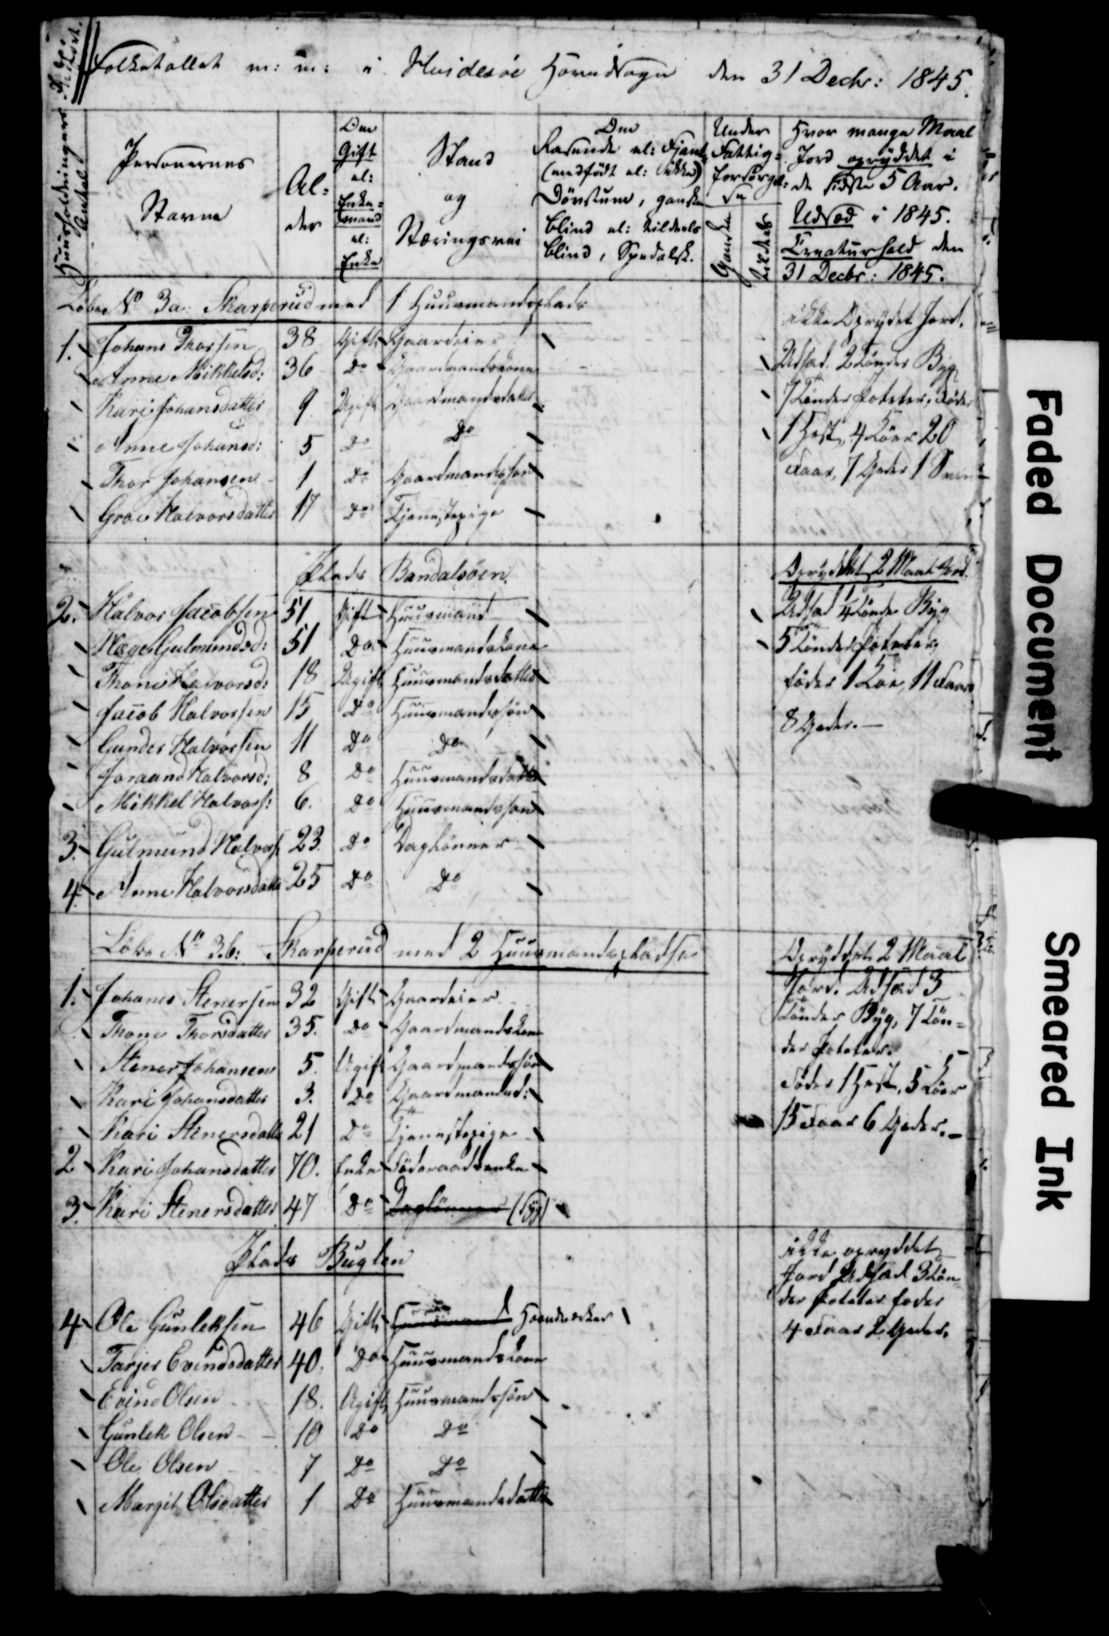 Folketallet m: m: i Hvidesøe Hovedsogn den 31 Decbr: 1845.
Huusholdningers Antal
Personernes Navne
Alder
Om Gift el: Enkemand el: Enke
Stand og Næringsvei
Om Rasende el: Fjante (medfødt el: ikke) Døvstum, ganske blind el: tildeels blind, Spedalsk.
Under Fattigforsørgelse
Ganske
Tildeels
Hvor mange Maal Jord opryddet i de sidste 5 Aar.
Udsæd i 1845.
Creaturhold den 31 Decbr: 1845.
Løbe No 3a: Skarperud med 1 Huusmandsplads
ikke Oprydet Jord.
Udsæd 2 Tønder Byg
7 Tønder Poteter, føder
1 Hest, 4 Køer 20
Faar, 7 Geder 1 Sviin
1. Johans Thorsen 38 Gift Gaardeier
Anne Mikkelsd: 36 Do Gaardmandskone
Kari Johansdatter 9 Ugift Gaardmandsdatter
Anne Johansd: 5 Do Do
Thor Johansen 1 Do Gaardmandssøn
Groe Halvorsdatter 17 Do Tjenestepige
Plads Bandalsøen
Opryddet 2 Maal Jord
Udsæd 4 Tønder Byg
5 Tønder Poteter,
føder 1 Koe, 11 Faar
8 Geder.
2. Halvor Jacobsen 51 Gift Huusmand
Gulmundsd: 51 Do Huusmandskone
Thone Halvorsd: 18 Ugift Huusmandsdatter
Jacob Halvorsen 15 Do Huusmandssøn
Gunder Halvorsen 11 Do Do
Joraand Halvorsd: 8 Do Huusmandsdatter
Mikkel Halvors: 6. Do Huusmandssøn
3. Gulmund Halvors: 23 Do Daglønner
4 Anne Halvorsdatter 25 Do Do
Løbe No 3b: Skarperud med 2 Huusmandspladse
Opryddet 2 Maal
Jord. Udsæd 3
Tønder Byg, 7 Tønder Poteter.
Føder 1 Hest, 5 Køer
15 Faar 6 Geder.
1. Johans Stenersen 32 Gift Gaardeier
Thone Thorsdatter 35. Do Gaardmandskone
Stener Johansen 5. Ugift Gaardmandssøn
Kari Johansdatter 3. Do Gaardmandsd:
Kari Stenersdatter 21 Do Tjenestepige
2 Kari Johansdatter 70. Enke Føderaadsenke
3. Kari Stenersdatter 47 Do Daglønner
Plads Bugten
ikke opryddet
Jord Udsæd 3 Tønder Poteter føder
4 Faar 2 Geder.
4 Ole Gunleksen 46 Gift Huusmand Haandværker
Tarjer Evindsdatter 40. Do Huusmandskone
Evind Olsen 18. Ugift Huusmandssøn
Gunlek Olsen 10 Do Do
Ole Olsen 7 Do Do
Margit Olsdatter 1 Do Huusmandsdatter
Faded Document
Smeared Ink